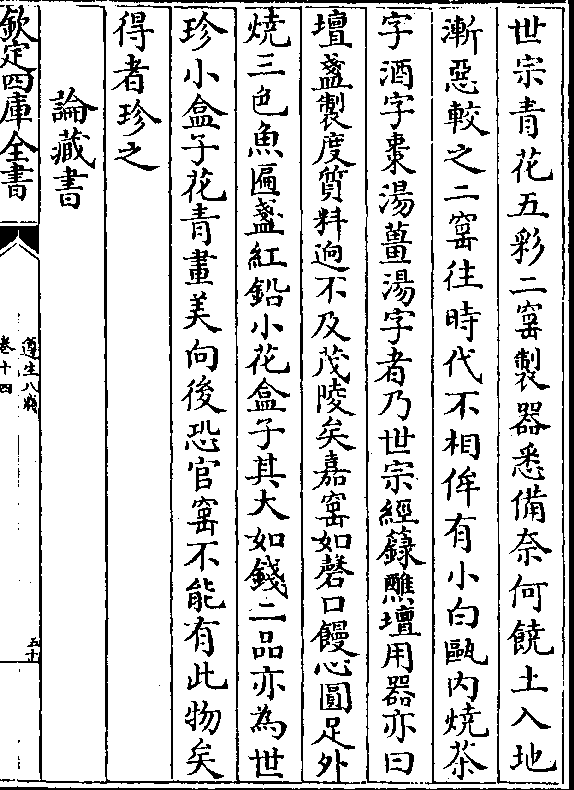 世宗青花五彩二窰製器悉備奈何饒土入地
漸惡較之二窰往時代不相侔有小白甌内燒茶
字酒字棗湯薑湯字者乃世宗經籙醮壇用器亦曰
壇盞製度質料逈不及茂陵矣嘉窰如磬口饅心圓足外
燒三色魚匾盞紅鉛小花盒子其大如錢二品亦為世
珍小盒子花青畫美向後恐官窰不能有此物矣
得者珍之
論藏書
欽定四庫全書
遵生八牋
卷十四
五十